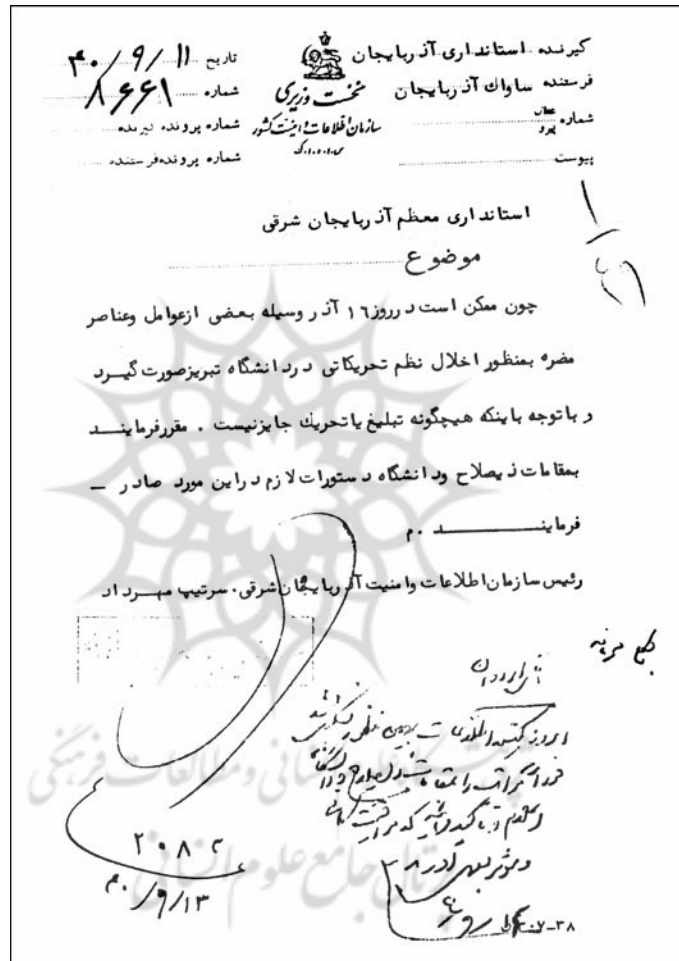 گیرنده استانداری آذربایجان
فرستنده ساواك آذربایجان
شماره عطف پیرو
پیوست
نخست وزیری
سازمان اطلاعات و امنیت کشور
س.ا.و.ا.ك
تاریخ ۴۰/۹/۱۱
شماره ۸۶۶۱
شماره پرونده گیرنده
شماره پرونده فرستنده
استانداری معظم آذربایجان شرقی
موضوع
چون ممکن است درروز ۱٦ آذر وسیله بعضی ازعوامل وعناصر
مضره بمنظور اخلال نظم تحریکاتی دردانشگاه تبریزصورت گیـــرد
و باتوجه باینکه هیچگونه تبلیغ یاتحریك جایزنیست . مقررفرماینـــد
بمقامات ذیصلاح ودانشگاه دستورات لازم دراین مورد صادر –
فرماینـــــــد .م
رئیس سازمان اطلاعات وامنیت آذربایجان شرقی. سرتیپ مهـــرداد
۲۰۸۲
۴۰/۹/۱۳
پژوهشگاه علوم انسانی و مطالعات فرهنگی
پرتال جامع علوم انسانی